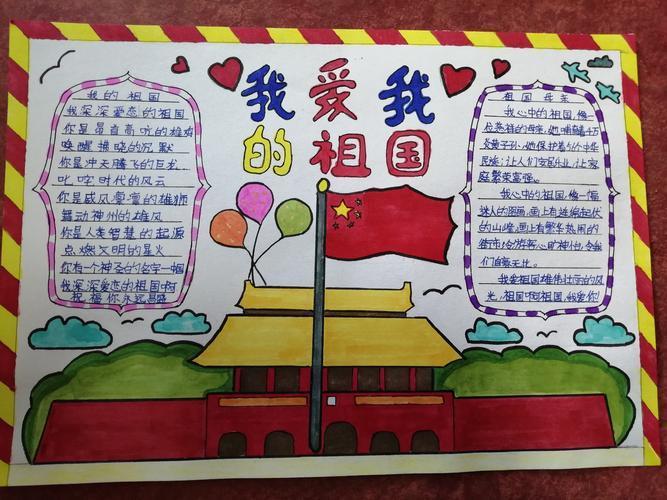 我爱我
的祖国
我的祖国
我深深爱恋的祖国
你是昂首高吭的雄鸡
唤醒拂晓的沉默
你是冲天腾飞的巨龙
叱咤时代的风云
你是威风凛凛的雄狮
舞动神州的雄风
你是人类智慧的起源
点燃文明的星火
你有一个神圣的名字
我深深爱恋的祖国啊
祝福你永远昌盛
祖国母亲
我心中的祖国,像一
位慈祥的母亲,她哺育千万
炎黄子孙,她保护着56个中华
民族;让人们安居乐业,让家
庭繁荣富强。
我心中的祖国,像一幅
迷人的图画,画上有连绵起伏
的山峰,画上有繁华热闹的
街市,令游客心旷神怡,令我
们自豪无比。
我爱祖国雄伟壮丽的风
光,祖国啊祖国,我爱你!